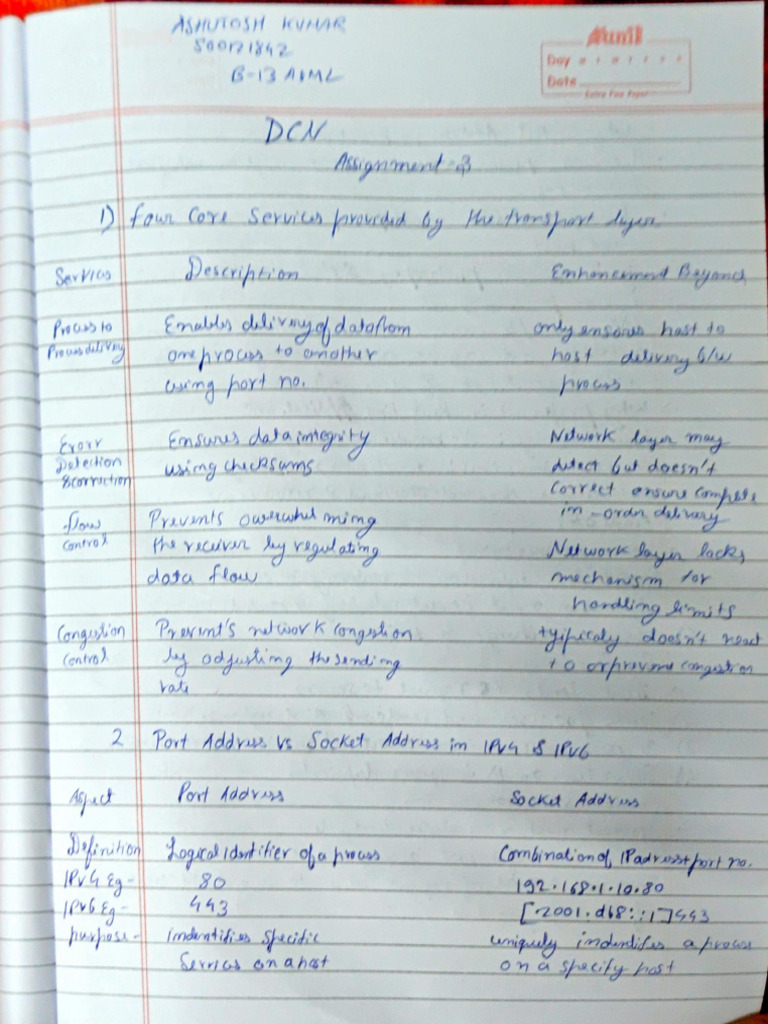 ASHUTOSH KUMAR
500121842
B-13 AIML
Day
Date
DCN
Assignment-3
1) four Core Services provided by the transport layer
Services Description Enhancement Beyond
Process to Enables delivery of data from only ensures host to
Process delivery one process to another host delivery b/w
using port no. process
Erorr Ensures data integrity Network layer may
Detection using checksums detect but doesn't
&correction correct ensure complete
in-order delivery
flow Prevents overwhelming
control the receiver by regulating Network layer lacks
data flow mechanism for
handling limits
Congestion Prevent's network congestion typicaly doesn't react
Control by adjusting the sending to or prevent congestion
rate
2 Port Address Vs Socket Address in IPv4 & IPv6
Aspect Port Address Socket Address
Definition Logical Identifier of a process Combination of IP adress+port no.
IPv4 Eg- 80 192.168.1.10.80
IPv6 Eg- 443 [.2001.db8::1]443
purpose- indentifies specific uniquely indentifes a process
Services on a host on a specify host